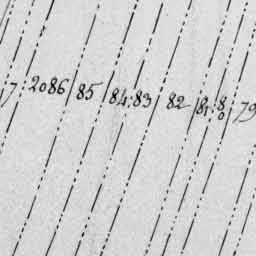 7 2086 85 84 83 82 81 80 79